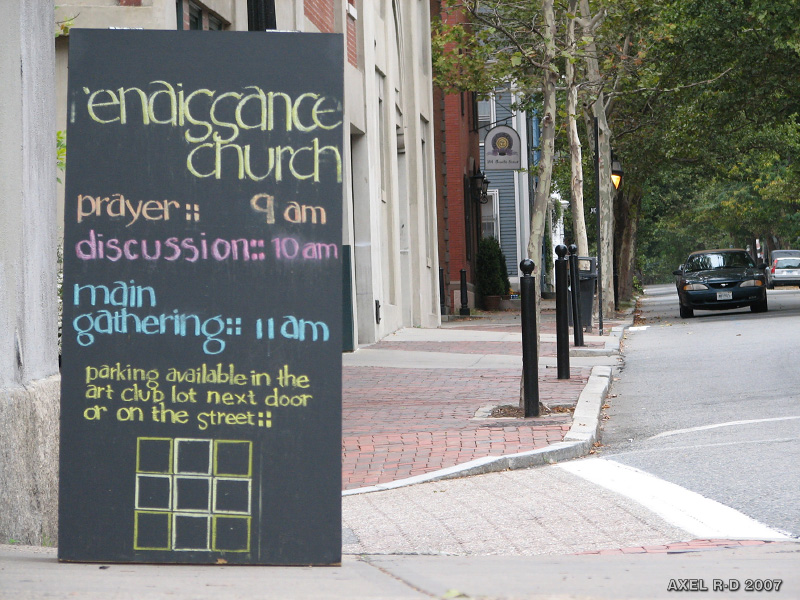 renaissance
church
prayer:: 9 am
discussion:: 10 am
main
gathering:: 11am
parking available in the
art club lot next door
or on the street::
AXEL R-D 2007